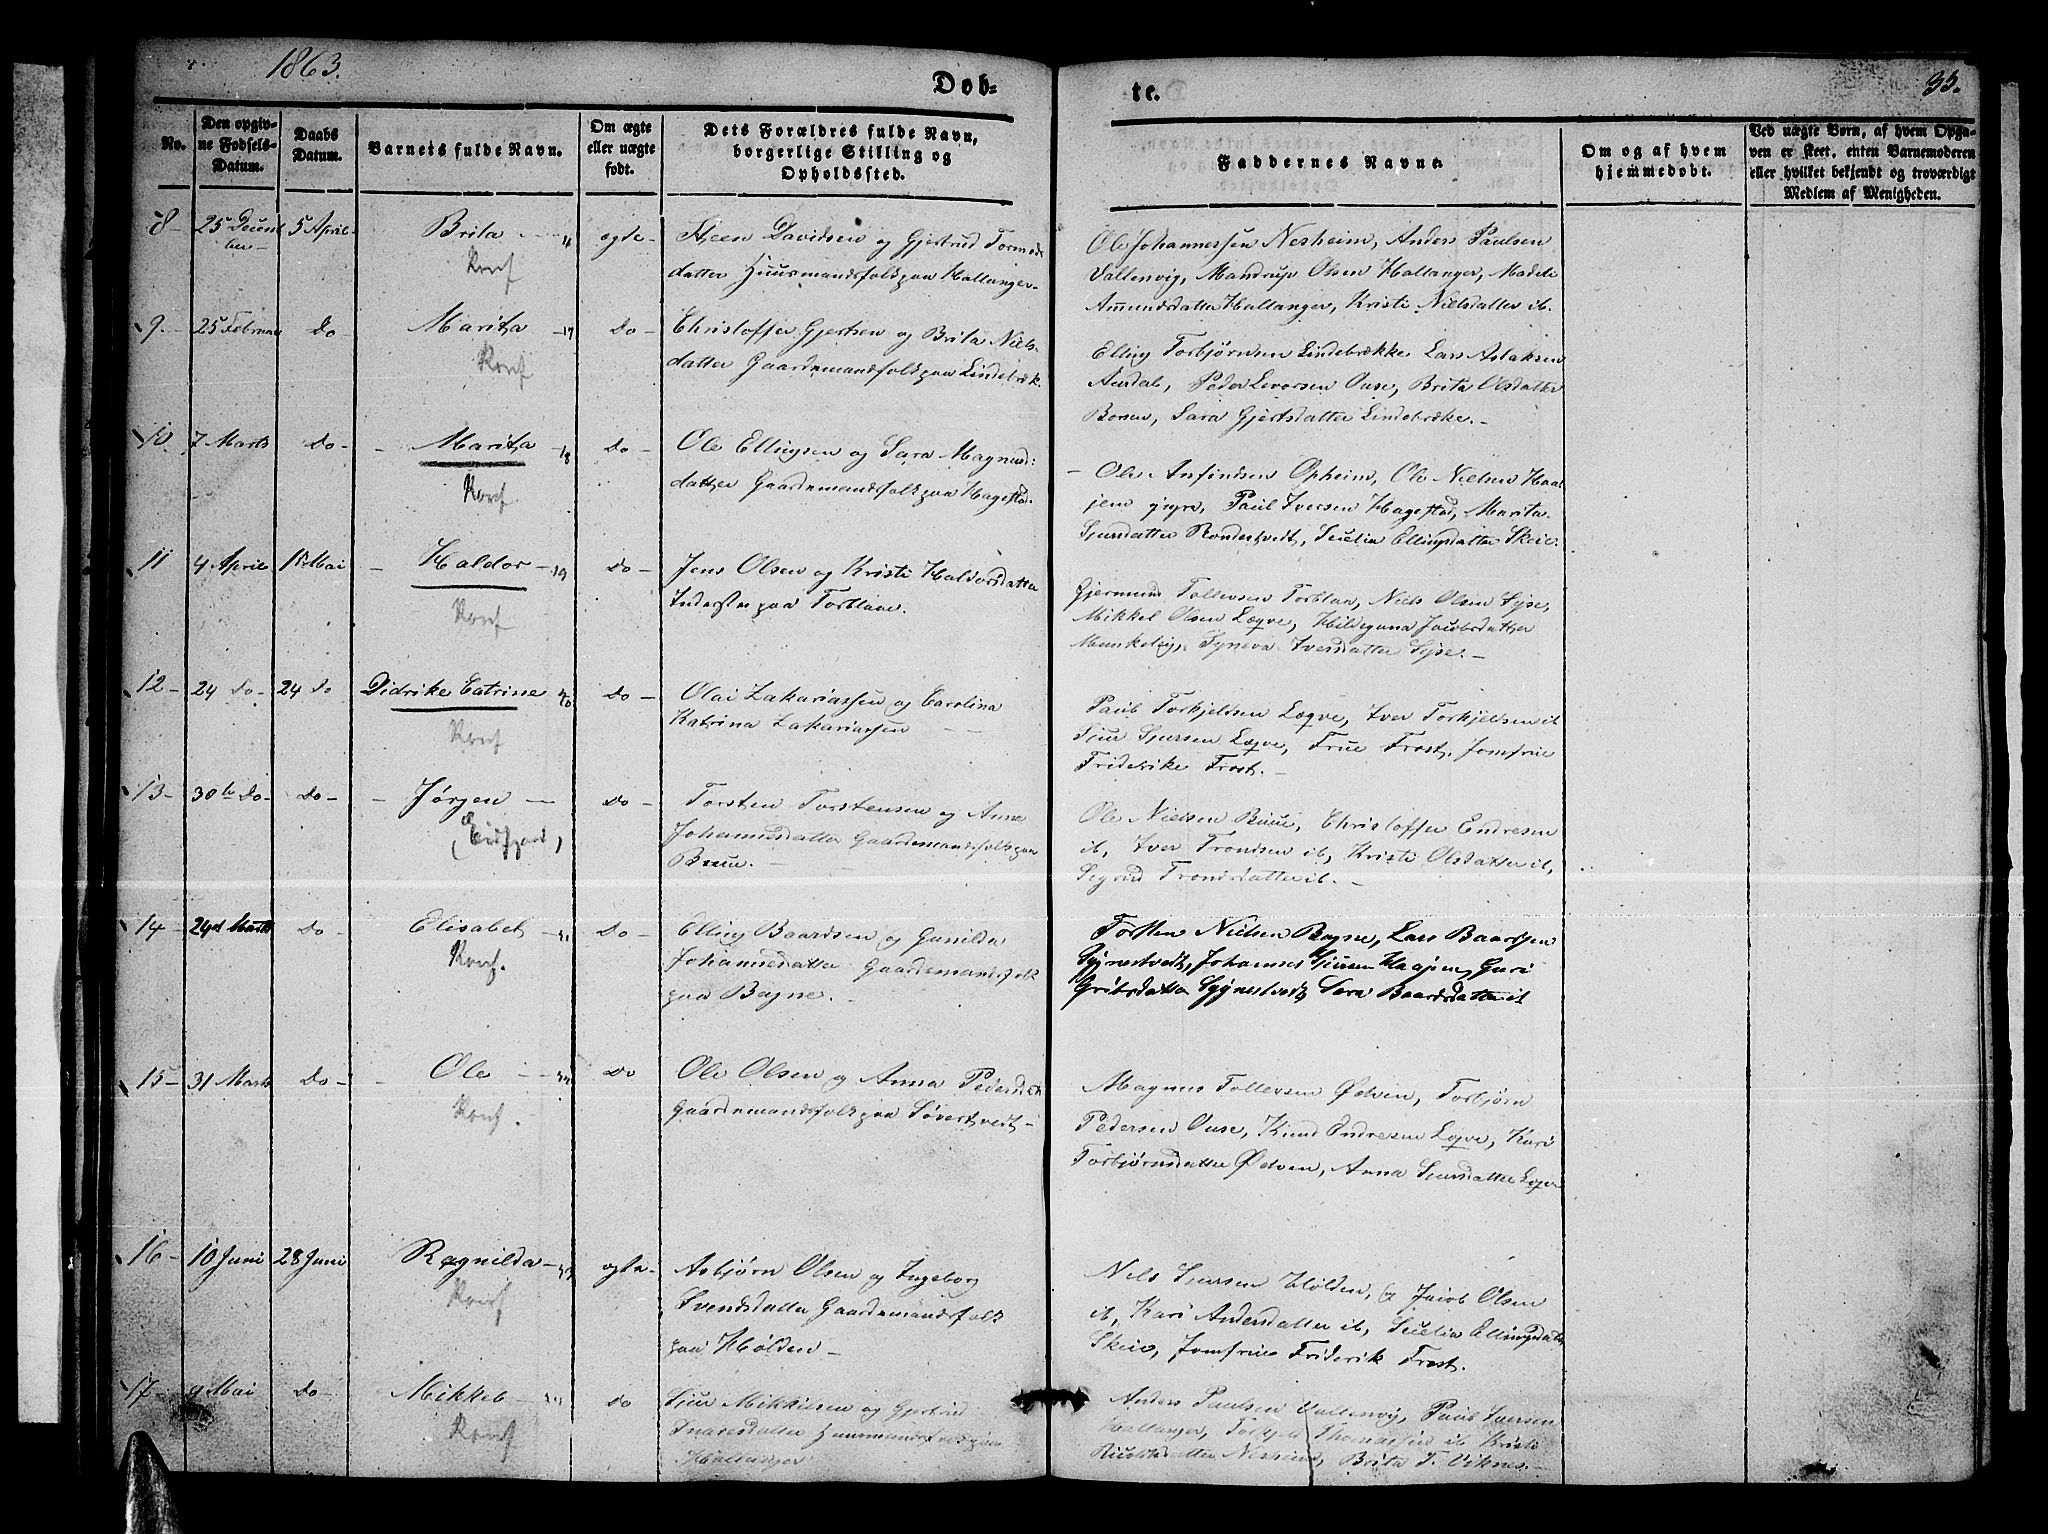 1863.
Døb-
te.
35.
No.
Den opgiv-
ne Fødsels-
Datum.
Daabs
Datum.
Barnets fulde Navn.
Om ægte
eller uægte
født.
Dets Forældres fulde Navn,
borgerlige Stilling og
Opholdssted.
Faddernes Navne.
Om og af hvem
hjemmedøbt.
Ved uægte Børn, af hvem Opga-
ven er skeet, enten Barnemoderen
eller hvilket bekjendt og troværdigt
Medlem af Menigheden.
8 - 25 Decem
ber -
5 April
Brita
Konf
ægte -
Steen Davidsen og Gjertrud Tormods
datter Huusmandsfolk paa Haltanger -
Ole Johannessen Nesheim, Anders Paulsen
Vallenvig, Mandrup Olsen Haltanger, Madele
Amundsdatter Haltanger, Kristi Nielsdatter ib.
9. 25 Februar
Do
Marita - 17
Konf
Do -
Christoffer Gjertsen og Brita Niels-
datter Gaardemandsfolk paa Lindebræk
Elling Torbjørnsen Lindebrække Lars Aslaksen
Aasdal, Peder Levorsen Ouse, Brita Olsdatter
Borsen, Sara Gjertsdatter Lindebræke. -
10. 7 Marts
Do -
- Marita - 18
Konf
Do -
Ole Ellingsen og Sara Magnus:
datter Gaardemandsfolk paa Hagestad.
- Ole Anfindsen Opheim, Ole Nielsen Haa-
jem , Paul Iversen Hagestad, Marita
Sjursdatter Rondestvedt, Secelia Ellingsdatter Skeie.
11 4 April
1 Mai
- Haldor - 19
Konf
Do -
Jens Olsen og Kristi Haldorsdatter
Inderster paa Torblaae.
Gjermund Tollevsen Torblaa, Niels Olsen Syse,
Mikkel Olsen Lægve, Hildeguna Jacobsdatter
Munkeby, Syneva Iversdatter Syse. -
12 - 24 Do -
24 Do
Didrike Catrine 20
Konf
Do -
Olai Zakariassen og Carolina
Katrina Zakariassen
Paul Torkjeldsen Lægve, Iver Torkjeldsen ib
Sjur Sjursen Lægve, Frue Frost, Jomfrue
Friderike Frost. -
13 - 30te Do -
Do -
- Jørgen -
(Eidfjord)
Do -
Torsten Torstensen og Anna
Johannesdatter Gaardemandsfolk paa
Bruue. -
Ole Nielsen Bruue, Christoffer Endresen
ib, Iver Trondsen ib, Kristi Olsdatter ib,
Sigrid Trondsdatter ib. -
14 - 24d Marts
Do -
Elisabet - 21
Konf.
Do -
Elling Baardsen og Gunilda
Johannesdatter Gaardemandsfolk
paa Bagne. -
Torsten Nielsen Bagne, Lars Baardsen
Syjnestvedt, Johannes Sjursen Haajem, Guri
Gribsdatter Syjnestvedt, Sara Baardsdatter ib
15 - 31 Marts
Do -
- Ole - 22
Konf.
Do
Ole Olsen og Anna Pedersdatt
Gaardemandsfolk paa Søvestvedt -
Magnus Tollevsen Ødven, Torbjørn
Pedersen Ouse, Knud Endresen Lægve, Kari
Torbjørnsdatter Ødven, Anna Sjursdatter Lægve
16 - 10 Juni
28 Juni
Ragnilda - 23
Konf
ægte -
Asbjørn Olsen og Ingeborg
Svendsdatter Gaardemandsfolk
paa Hølden -
Nils Sjursen Hølden, og Jacob Olsen
ib, Kari Andersdatter ib, Secelia Ellingsdatter
Skeie, Jomfrue Friderik Frost.
17 - 9 Mai
Do -
Mikkel -
Konf
Do
Sjur Mikkelsen og Gjertrud
Ivarsdatter Huusmandsfolk paa
Haltanger
Anders Paulsen Vallenvig, Paul Iversen
Haltanger, Torkjel Thomassen ib Kristi
datter Nesheim, Brita T. Viknes. -